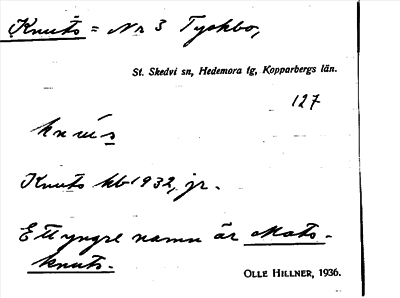 Knuts = Nr 3 Tyskbo,
St. Skedvi sn, Hedemora tg, Kopparbergs län.
127
knūs
Knuts kb 1932, jr.
Ett yngre namn är Mats-
knuts.
OLLE HILLNER, 1936.